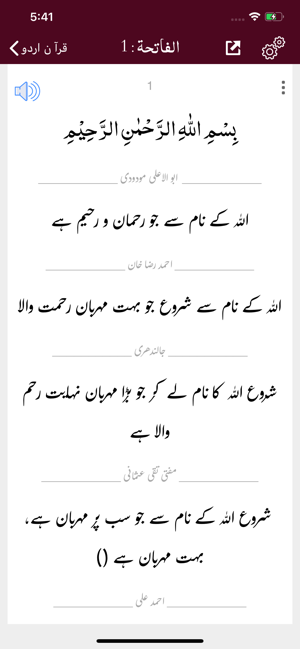 5:41
قرآن اردو
الفاتحة: 1
1
بِسْمِ اللّٰهِ الرَّحْمٰنِ الرَّحِيْمِ
ابو الاعلی مودودی
اللہ کے نام سے جو رحمان و رحیم ہے
احمد رضا خان
اللہ کے نام سے شروع جو بہت مہربان رحمت والا
جالندھری
شروع اللہ کا نام لے کر جو بڑا مہربان نہایت رحم
والا ہے
مفتی تقی عثمانی
شروع اللہ کے نام سے جو سب پر مہربان ہے،
بہت مہربان ہے ()
احمد علی